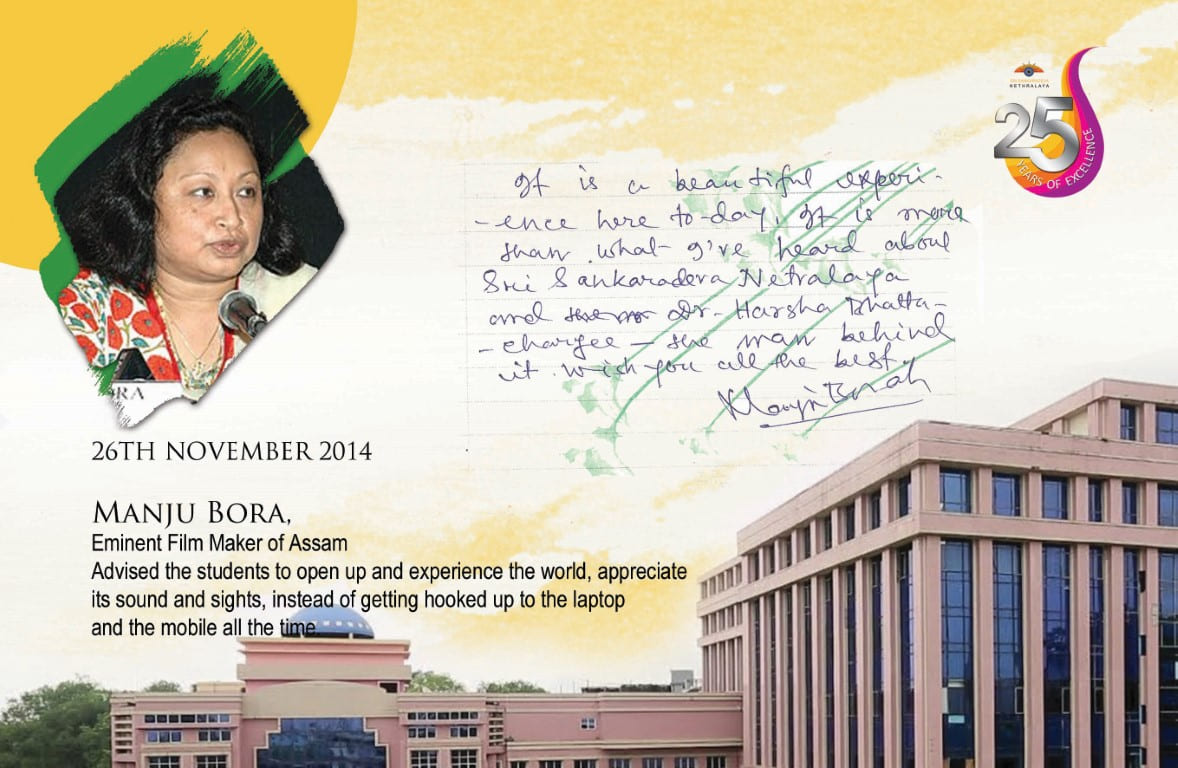 SRI SANKARADEVA
NETHRALAYA
25
YEARS OF EXCELLENCE
It is a beautiful experi-
-ence here to-day. It is more
than what I've heard about
Sri Sankaradeva Netralaya
and Dr. Harsha Bhatta-
-charjee – the man behind
it. Wish you all the best.
Manju Borah
RA
26TH NOVEMBER 2014
MANJU BORA,
Eminent Film Maker of Assam
Advised the students to open up and experience the world, appreciate
its sound and sights, instead of getting hooked up to the laptop
and the mobile all the time.